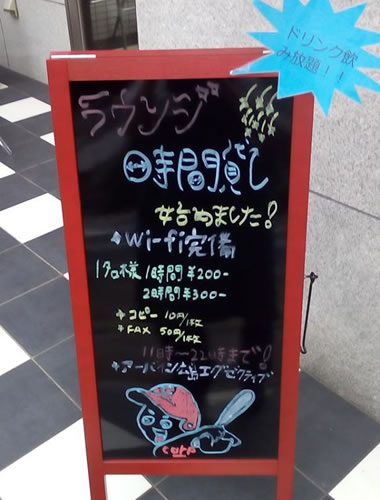 ドリンク飲
み放題！！
ラウンジ
時間貸し
始めました！
wi-fi完備
1名様 1時間￥200-
2時間￥300-
コピー 10円/1枚
FAX 50円/1枚
11時〜22時まで！
アーバイン広島エグゼクティブ
carp